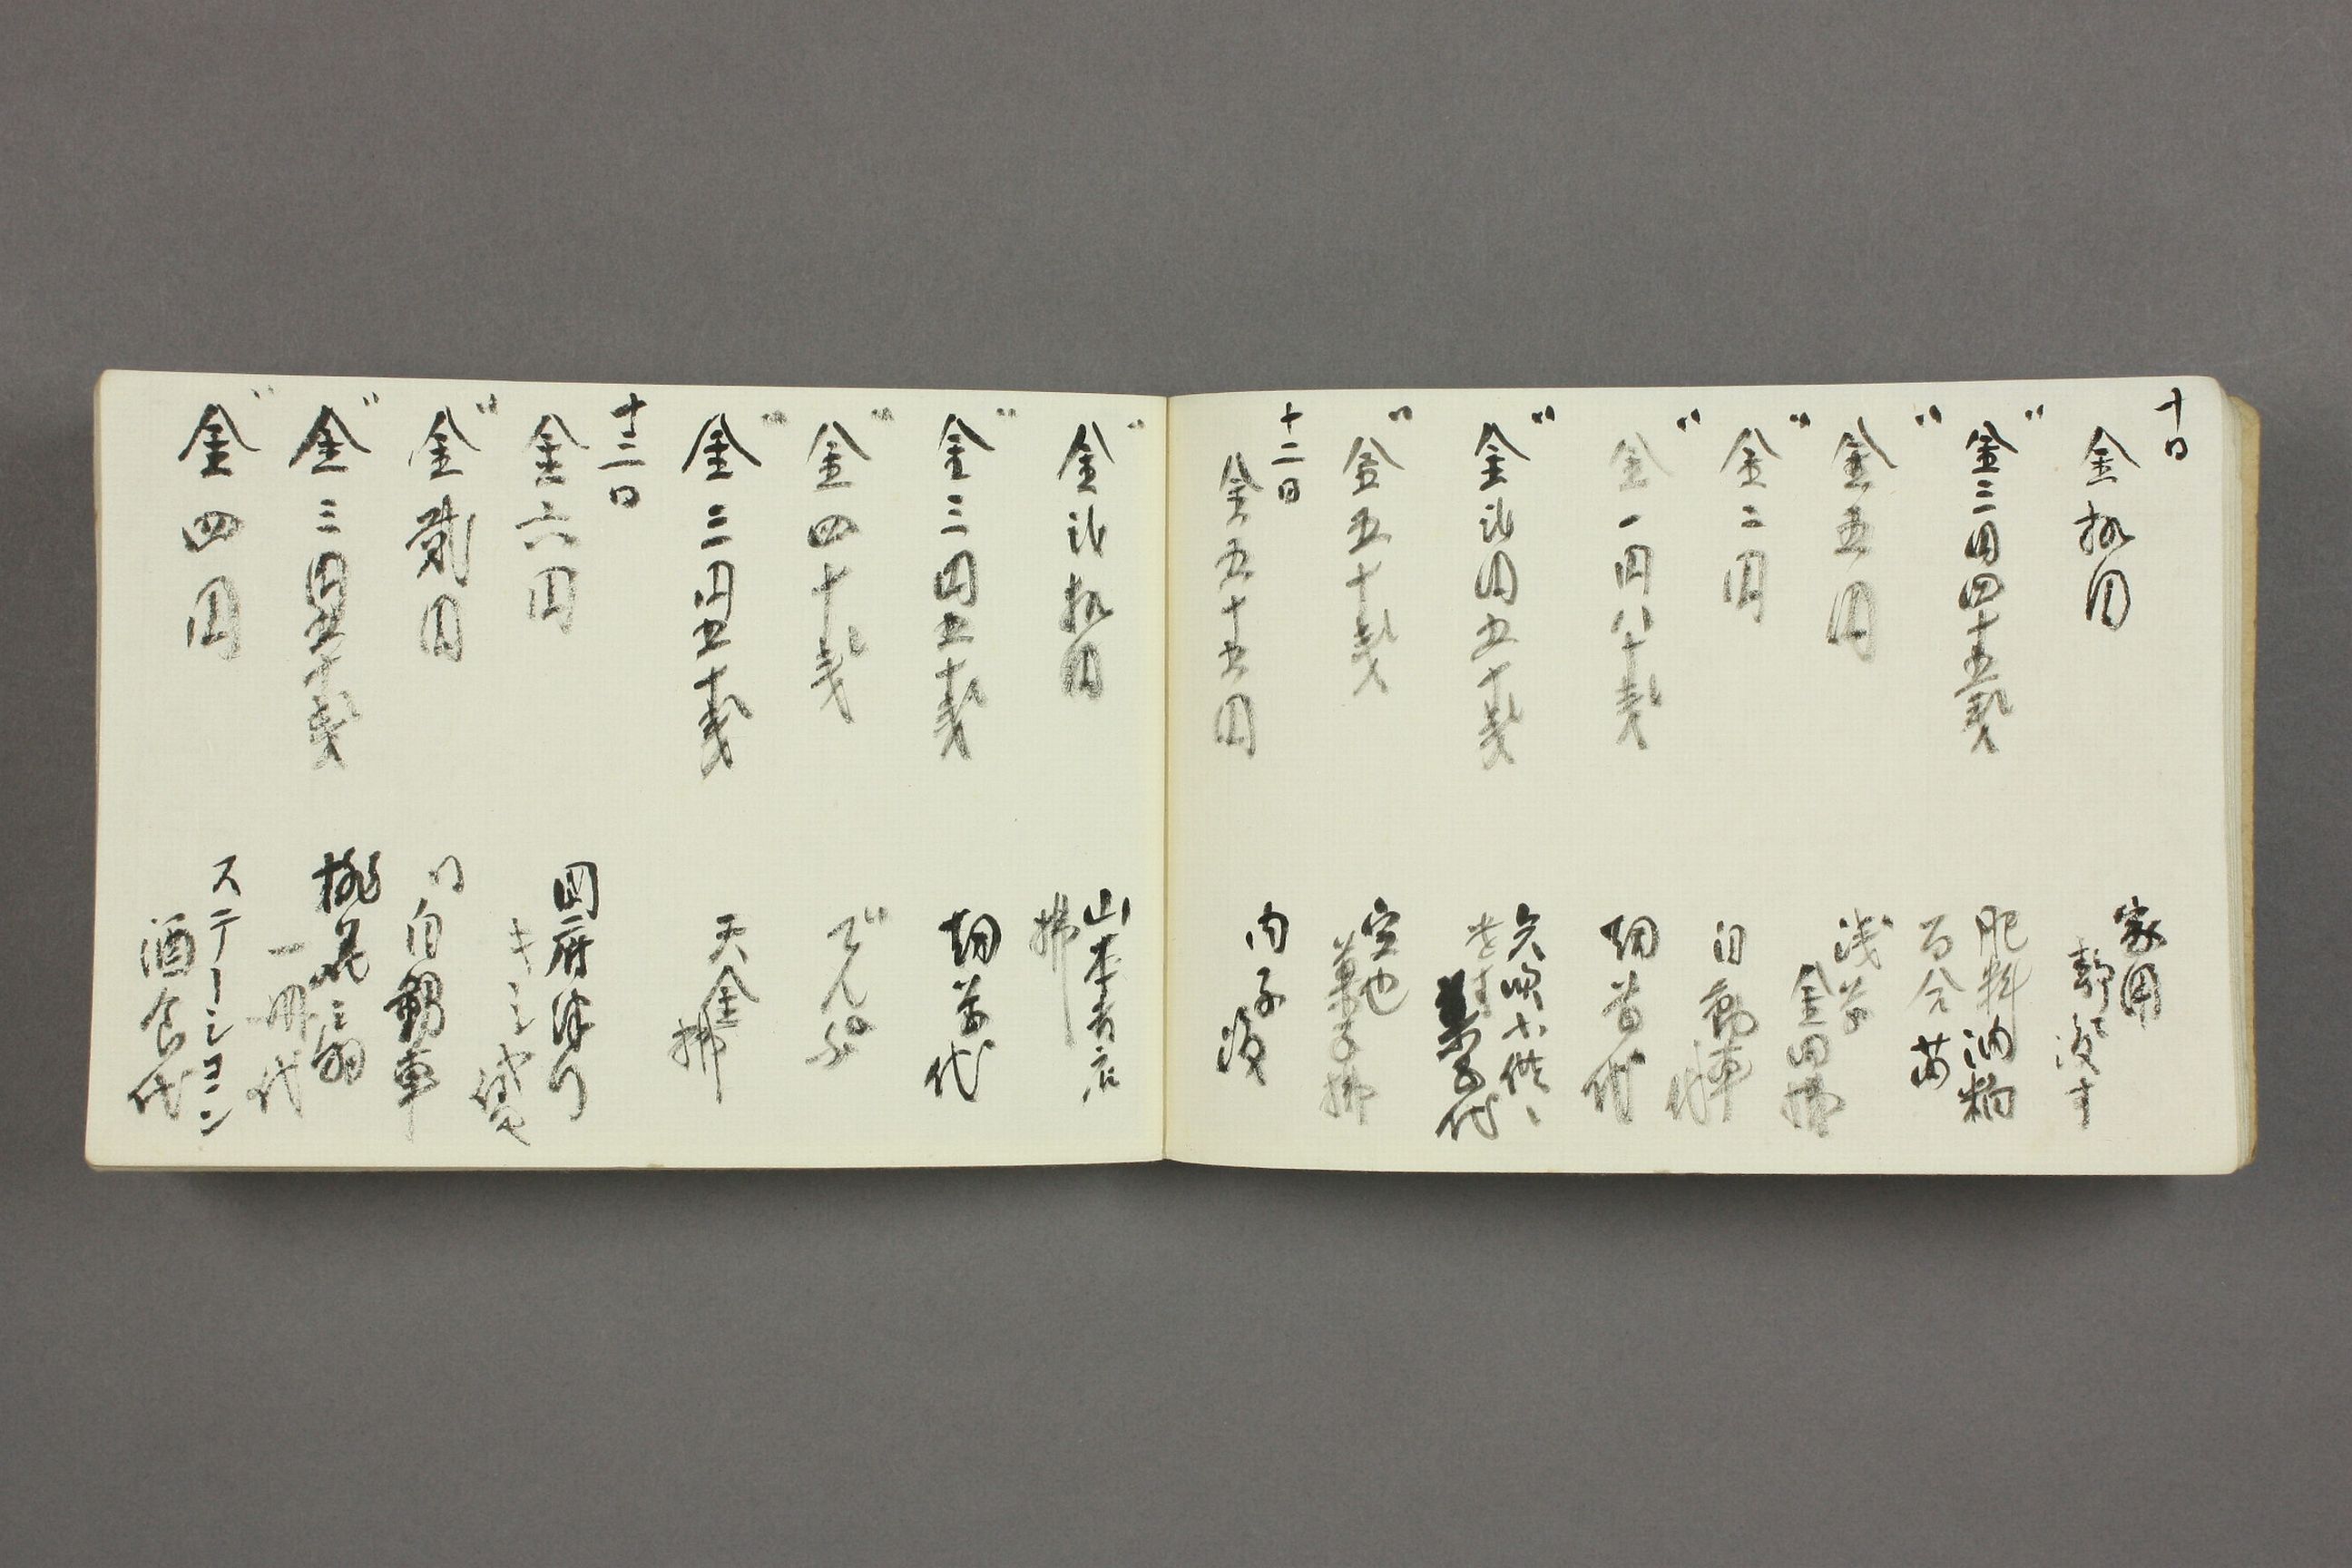 十日
金拾円
家用
静江渡す
〃
金三円四十五銭
肥料油粕
百合苗
〃
金五円
浅草
金田拂
〃
金二円
自動車代
〃
金一円八十銭
切符代
〃
金弐円五十銭
菓子代
〃
金五十銭
空也
菓子拂
十二日
金五十五円
内子渡
〃
金弐拾円
山本書店
拂
〃
金三円五十銭
切符代
〃
金四十銭
でんぷ
〃
金三円五十銭
天金拂
十三日
金六円
国府津行
キシャ賃
〃
金貳円
〃自動車
〃
金三円五十銭
桃花扇
一冊代
〃
金四円
ステーション
酒食代